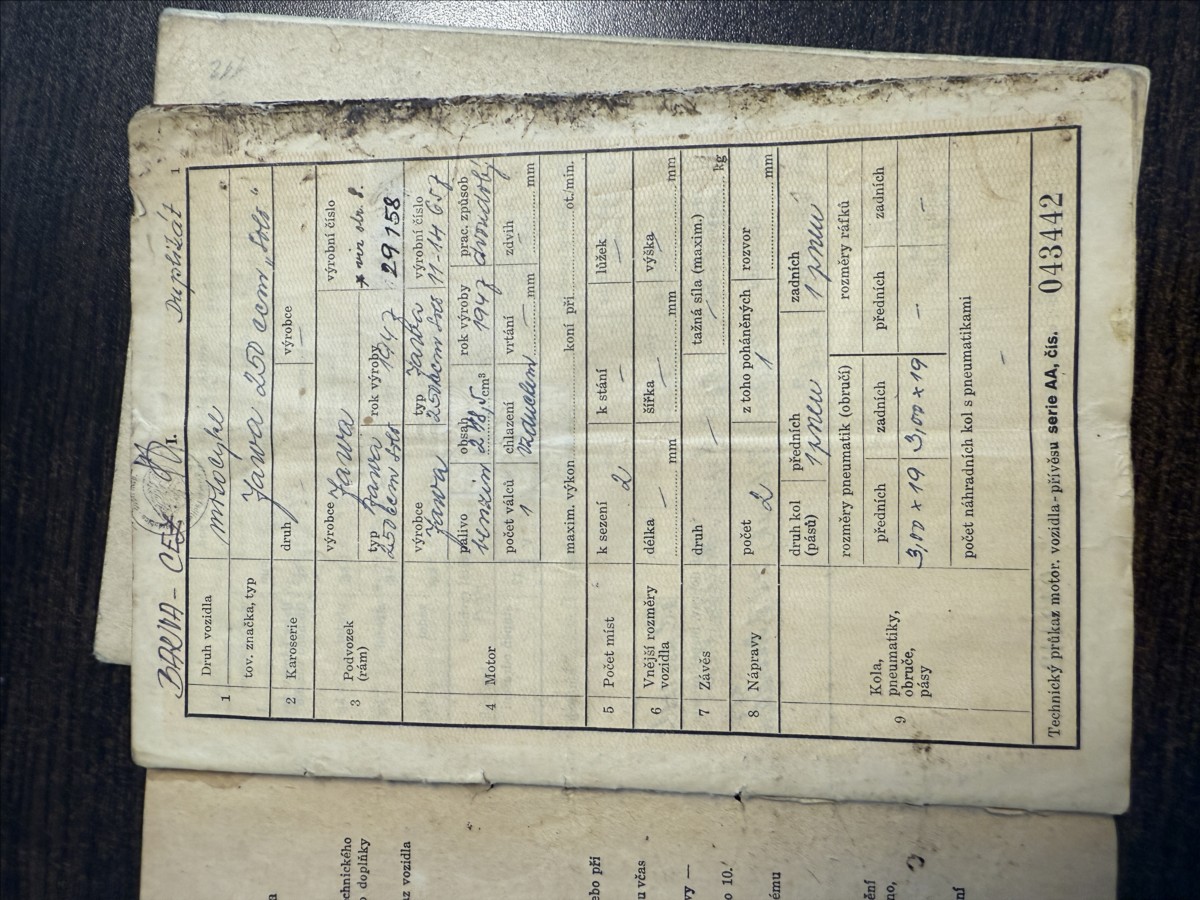 Duplikát 1
I.
1 Druh vozidla motocykl
tov. značka, typ Jawa 250 ccm „Solo“
2 Karoserie druh — výrobce —
3 Podvozek (rám) výrobce Jawa výrobní číslo * viz str. 8.
typ Jawa rok výroby 29158
250 bccm solo 1947
4 Motor výrobce typ Jawa výrobní číslo
Jawa 250 bccm solo 11-14 657
palivo obsah rok výroby prac. způsob
benzin 248,5 cm³ 1947 dvoudobý
počet válců chlazení vrtání zdvih
1 vzduchem — mm — mm
maxim. výkon koní při ot./min.
5 Počet míst k sezení k stání lůžek
2 — —
6 Vnější rozměry vozidla délka šířka výška
— mm — mm — mm
7 Závěs druh — tažná síla (maxim.) — kg
8 Nápravy počet z toho poháněných rozvor
2 1 mm
9 Kola, pneumatiky, obruče, pásy
druh kol (pásů) předních 1 pneu zadních 1 pneu
rozměry pneumatik (obručí) rozměry ráfků
předních zadních předních zadních
3,00 x 19 3,00 x 19 — —
počet náhradních kol s pneumatikami —
Technický průkaz motor. vozidla-přívěsu serie AA, čís. 043442
chnického
o doplňky
az vozidla
ebo při
u včas
vy —
o 10.
ému
ění
no,
ní